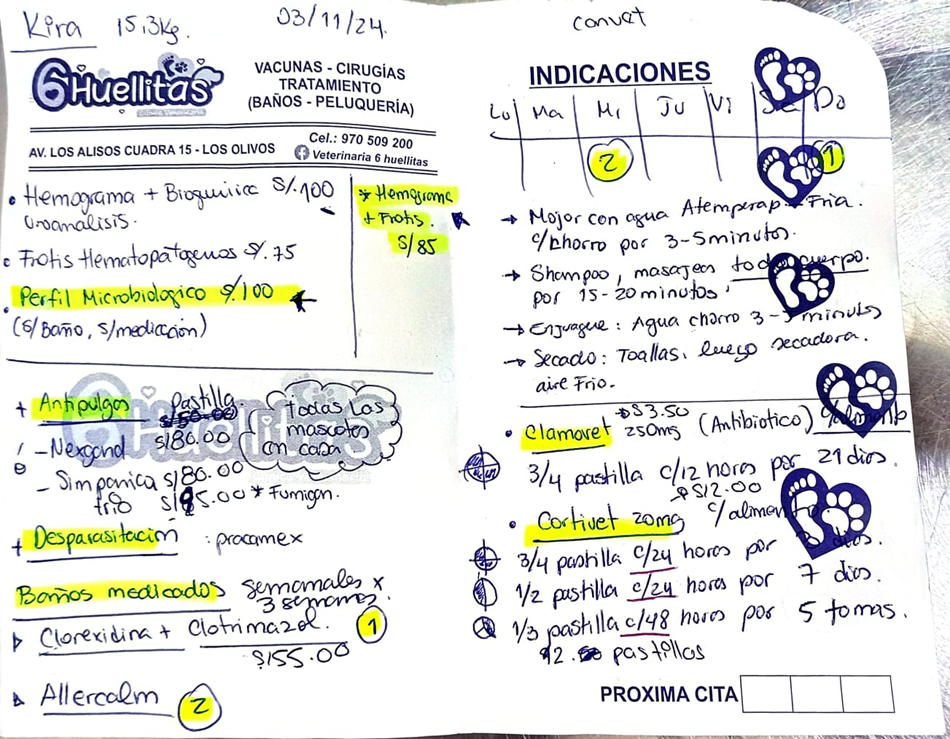 Kira 15,3Kg. 03/11/24.
6Huellitas
VACUNAS - CIRUGÍAS
TRATAMIENTO
(BAÑOS - PELUQUERÍA)
AV. LOS ALISOS CUADRA 15 - LOS OLIVOS
Cel.: 970 509 200
Veterinaria 6 huellitas
• Hemograma + Bioquimica S/.100
Uroanalisis.
• Frotis Hematopatogenos S/.75
• Perfil Microbiologico S/.100
(S/Baño, S/medicación)
* Hemograma
+ Frotis.
S/85
+ Antipulgas Pastilla.
- Nexgard S/80.00
- Simparica S/80.00
trio S/95.00 * Fumigar.
todas las
mascotas
en casa
+ Desparasitación : procamex
Baños medicados semanales x
3 semanas.
Clorexidina + Clotrimazol. 1
S/55.00
Allercalm 2
convet
INDICACIONES
Lu Ma Mi Ju Vi Sa Do
2 1
→ Mojar con agua Atemperap Fria.
c/chorro por 3-5minutos.
→ Shampoo, masajear todo cuerpo.
por 15-20minutos
→ Enjuague: Agua chorro 3-5 minutos
→ Secado: Toallas, luego secadora.
aire Frio.
→S3.50
• Clamovet 250mg (Antibiotico) c/alimento
3/4 pastilla c/12 horas por 21 dias.
→S12.00
• Cortivet 20mg c/alimento
3/4 pastilla c/24 horas por dias.
1/2 pastilla c/24 horas por 7 dias.
1/3 pastilla c/48 horas por 5 tomas.
12. pastillas
PROXIMA CITA